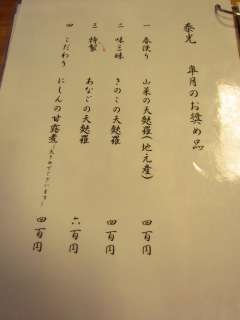 泰光 皐月のお奨め品
一 春便り 山菜の天麩羅(地元産) 四百円
二 味三昧 きのこの天麩羅 四百円
三 特製 あなごの天麩羅 六百円
四 こだわり にしんの甘露煮 四百円